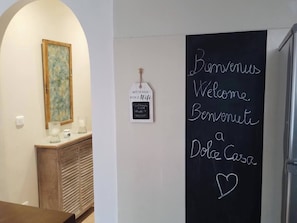 Bienvenus
Welcome
Benvenuti
a
Dolce Casa